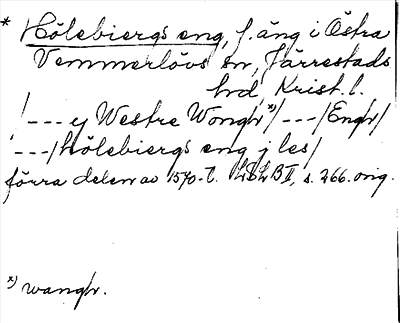 * Hölebiergs eng, f. äng i Östra
Vemmerlövs sn, Järrestads
hd, Krist. l.
/--- y Westre Wongh x)/---/Engh/
---/Hölebiergs eng j les/
förra delen av 1570-t. LBL B II, s. 266. orig.
x) wangh.